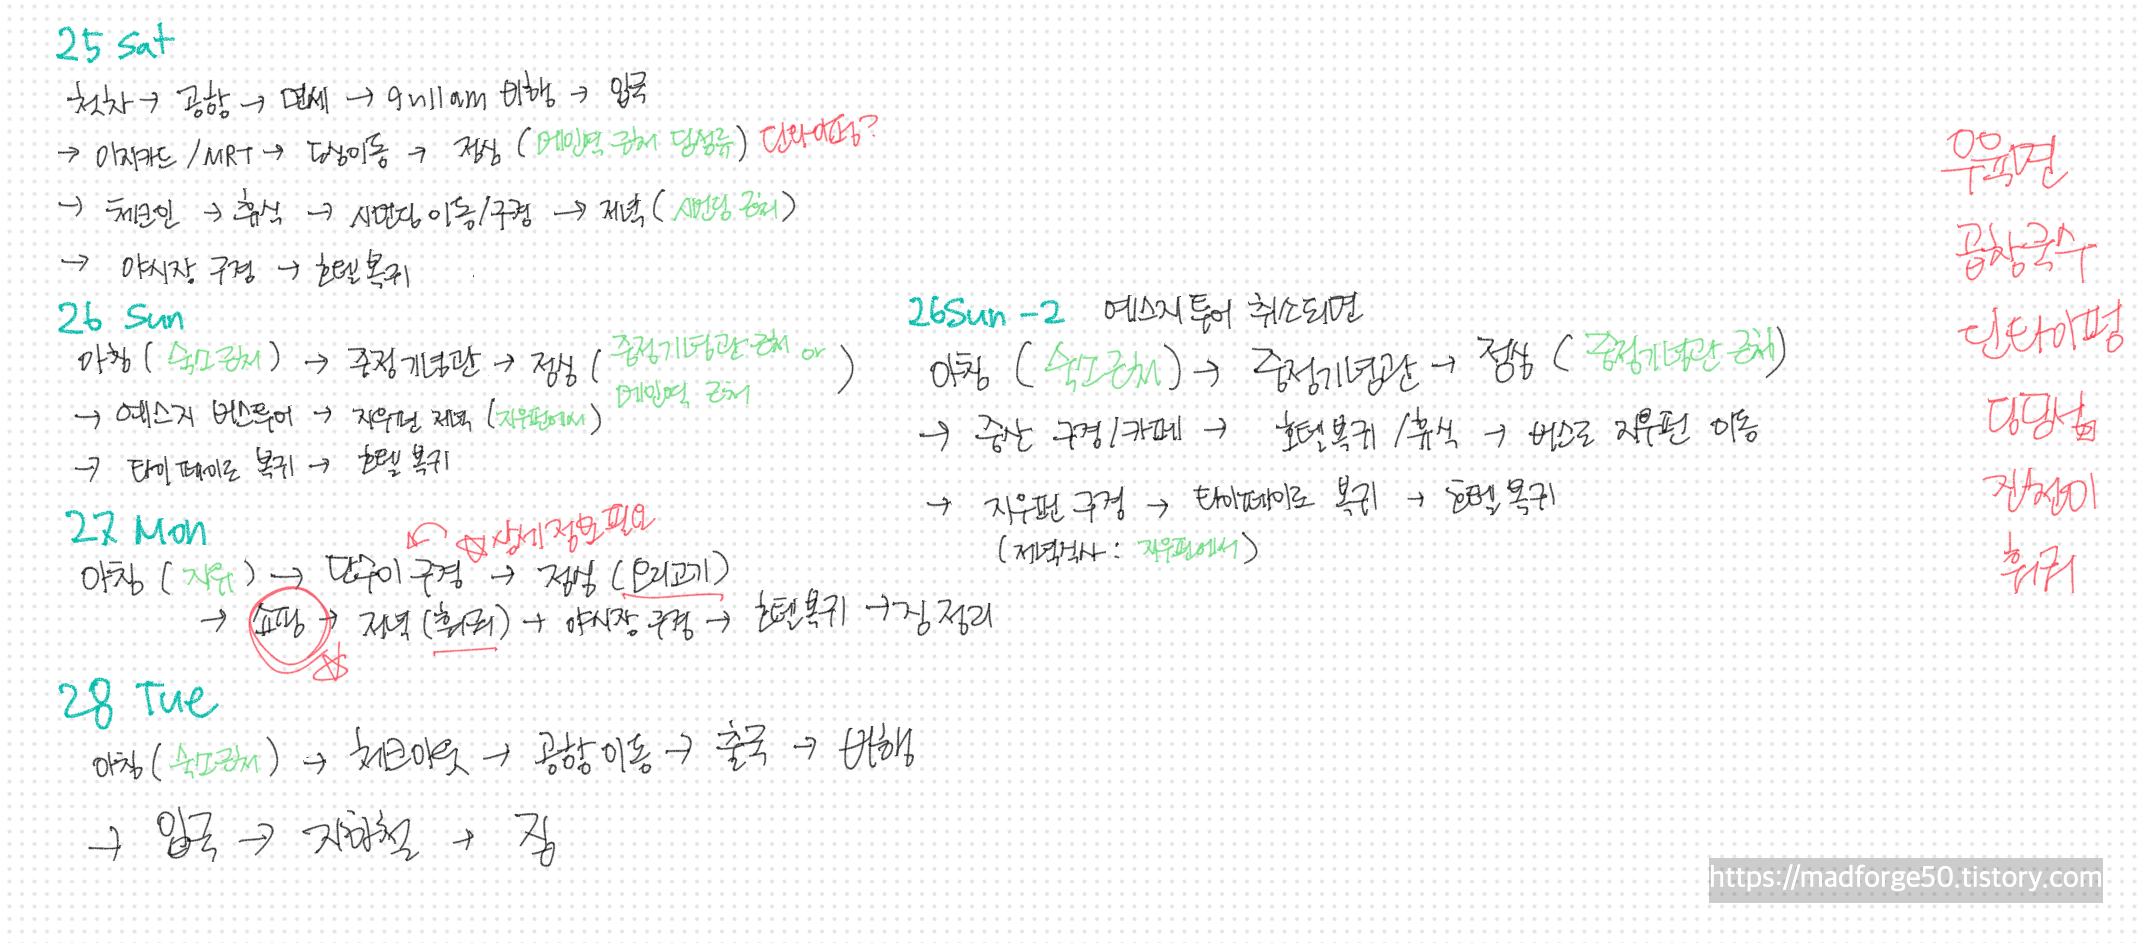 25 Sat
첫차 → 공항 → 면세 → 9시11am 비행 → 입국
→ 이지카드/MRT → 이동 → 점심 (메인역 근처 딤섬류) 딘타이펑?
→ 체크인 → 휴식 → 시먼딩 이동/구경 → 저녁 (시먼딩 근처)
→ 야시장 구경 → 호텔 복귀
26 Sun
아침 (숙소근처) → 중정기념관 → 점심 (중정기념관 근처 or
메인역 근처)
→ 예스지 버스투어 → 지우펀 저녁 (지우펀에서)
→ 타이페이로 복귀 → 호텔 복귀
26Sun -2 예스지투어 취소되면
아침 (숙소근처) → 중정기념관 → 점심 (중정기념관 근처)
→ 중산 구경/카페 → 호텔복귀/휴식 → 버스로 지우펀 이동
→ 지우펀 구경 → 타이페이로 복귀 → 호텔 복귀
(저녁식사 : 지우펀에서)
27 Mon
☆ 상세정보필요
아침 (자유) → 단수이 구경 → 점심 (오리고기)
→ 쇼핑 → 저녁 (훠궈) → 야시장 구경 → 호텔복귀 → 짐정리
☆
28 Tue
아침 (숙소근처) → 체크아웃 → 공항이동 → 출국 → 비행
→ 입국 → 지하철 → 집
우육면
곱창국수
딘타이펑
훠궈
https://madforge50.tistory.com